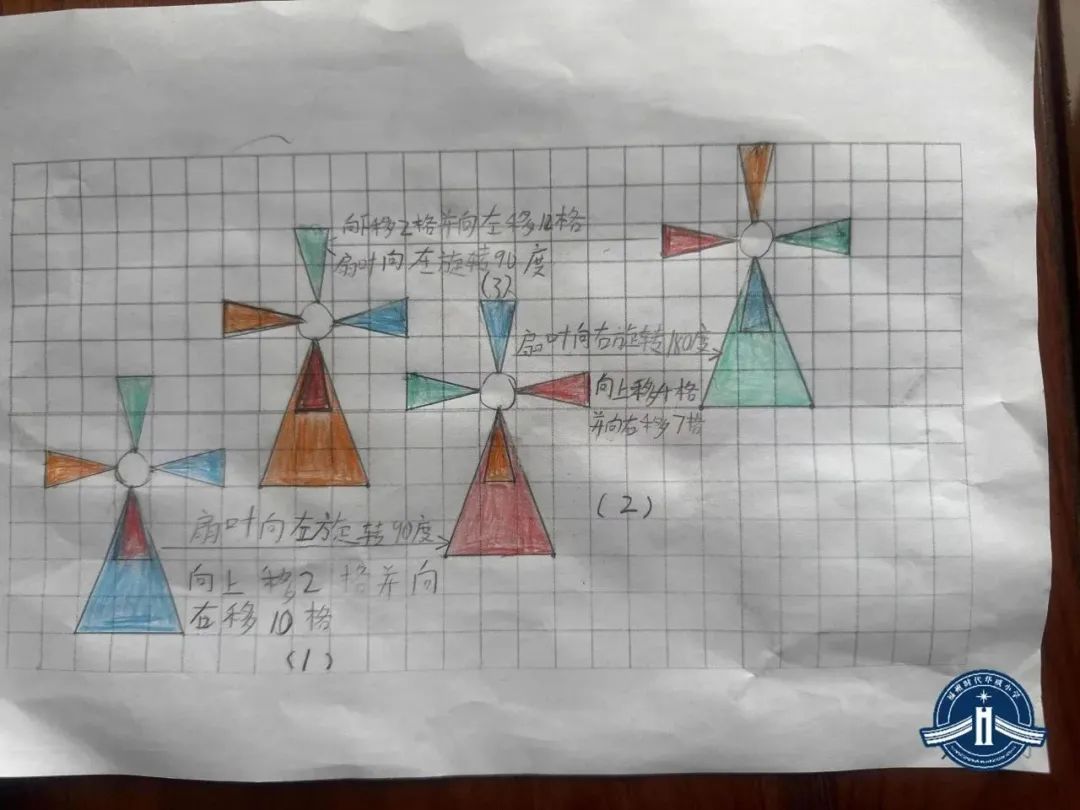 向下移2格并向左移10格
扇叶向左旋转90度
(3)
扇叶向右旋转180度
向上移4格
并向右移7格
(2)
扇叶向左旋转90度
向上移2格并向
右移10格
(1)
福州时代华威小学